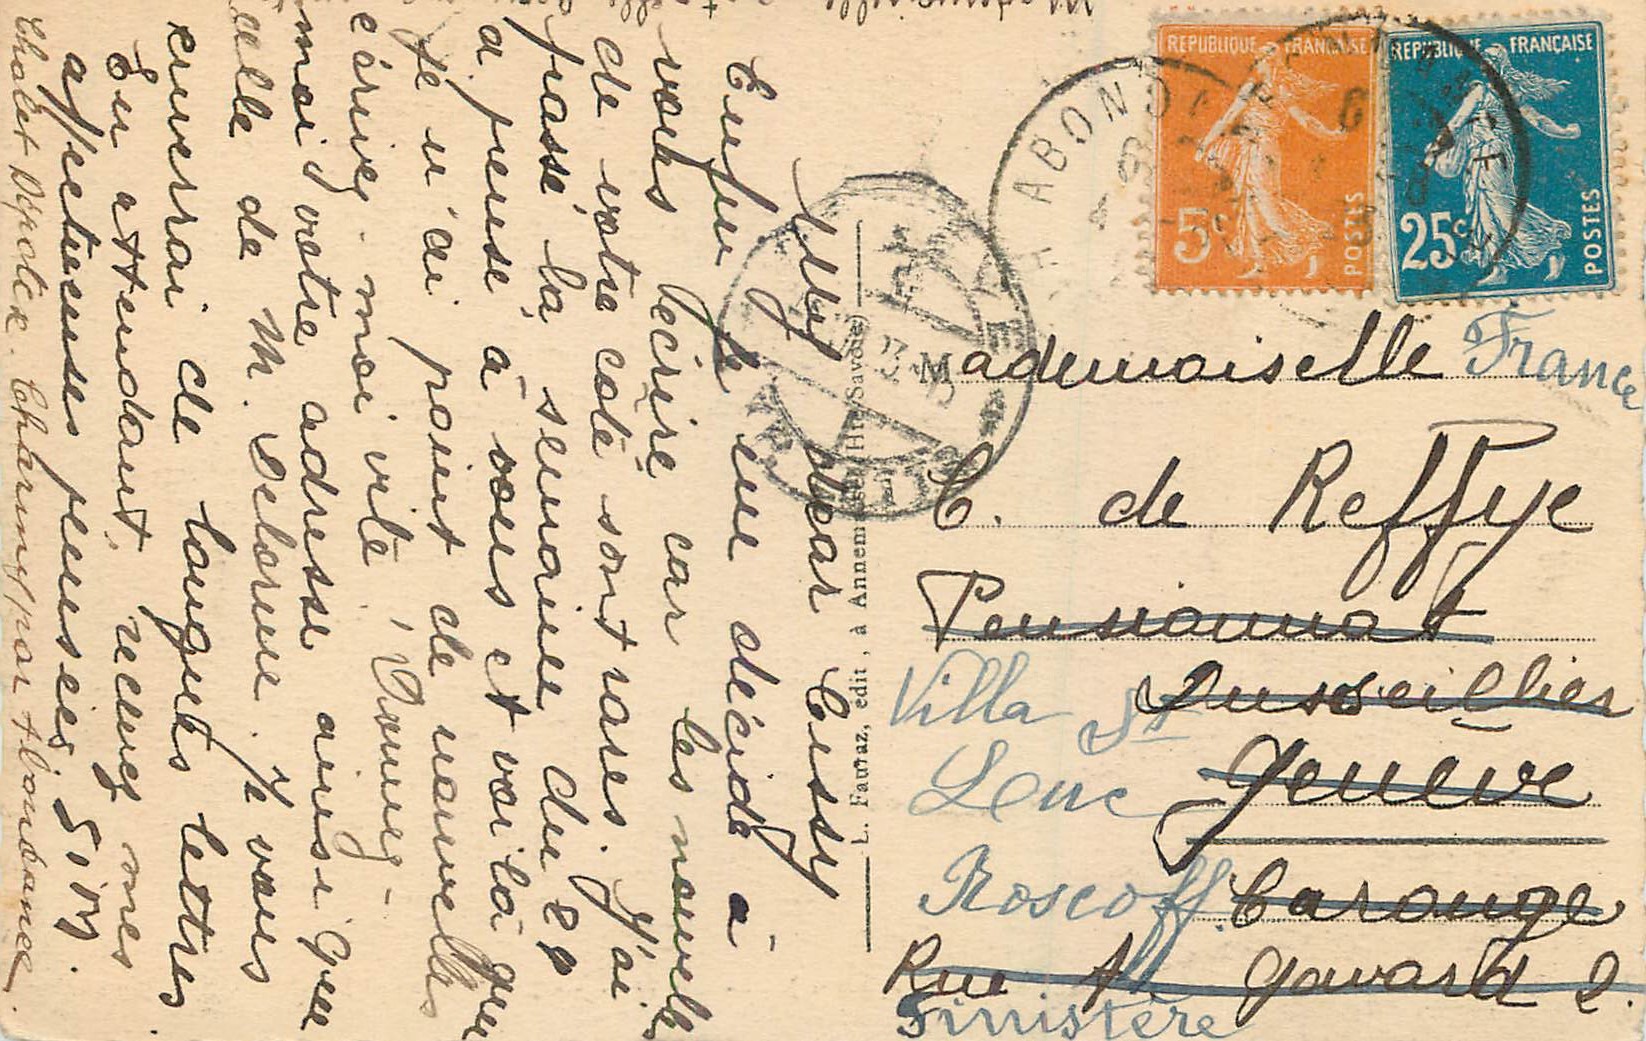 My dear Cussy
Enfin je me décide à
vous écrire car les nouvelles
de votre coté sont rares. J'ai
passé là, semaine du 29
a pensé à vous et voilà que
je n'ai point de nouvelles
écrivez-moi vite, Donnez-
moi votre adresse ainsi que
celle de M. Delorme. Je vous
enverrai de longues lettres
En attendant, recevez mes
affectueuses pensées SIM.
Chalet Charmy par Abondance
REPUBLIQUE FRANÇAISE
5c
POSTES
REPUBLIQUE FRANÇAISE
25c
POSTES
ABONDANCE
L. Fauraz, édit., à Annemasse (Hte-Savoie)
Mademoiselle France
C. de Reffye
Pensionnat
Villa St
Luc Genève
Roscoff. Carouge
Rue Gavard 2.
Finistère